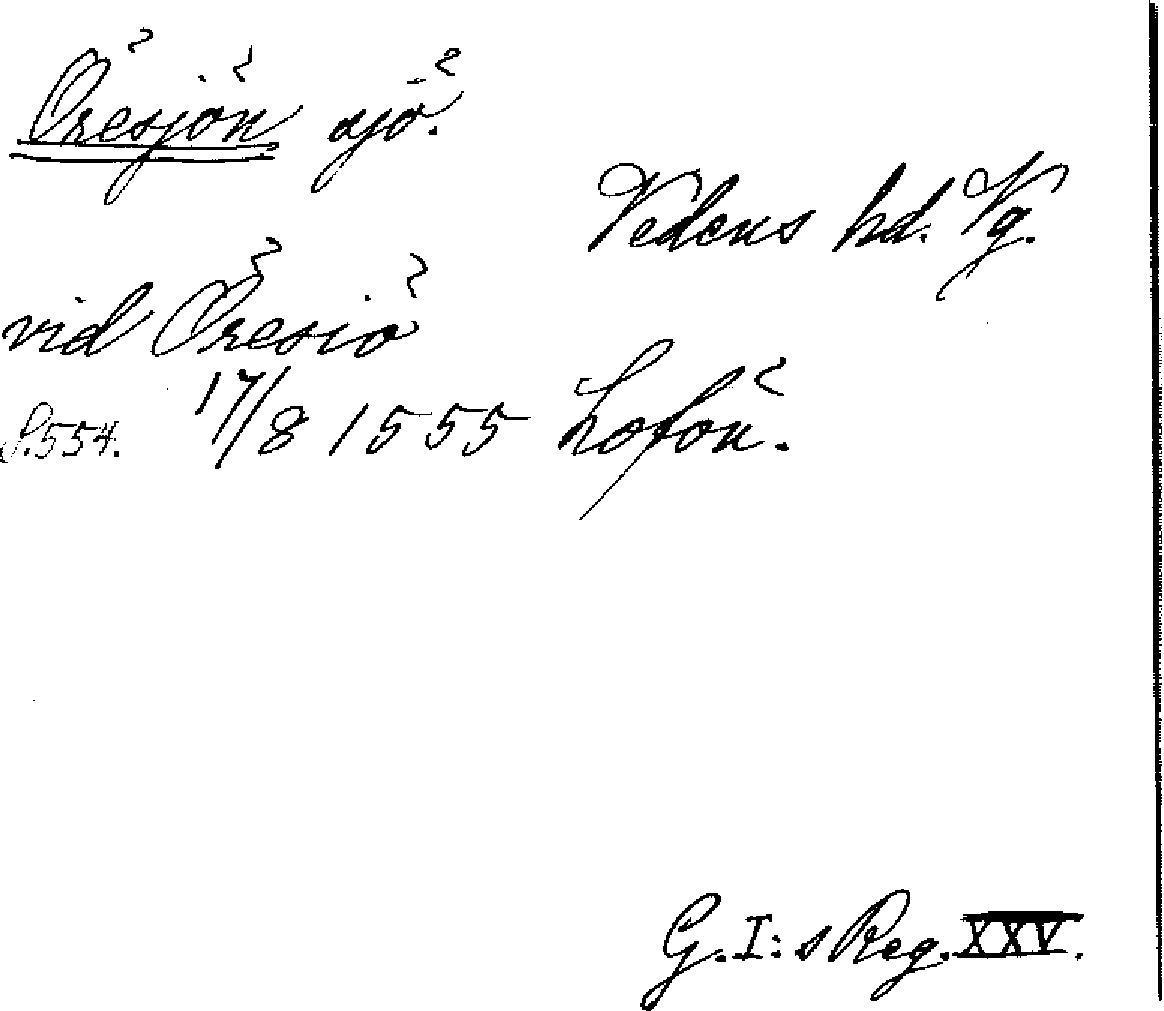 Öresjön sjö.
Vedens hd. Vg.
vid Öresiö
S.554. 17/8 1555 Lofön.
G.I:s Reg. XXV.